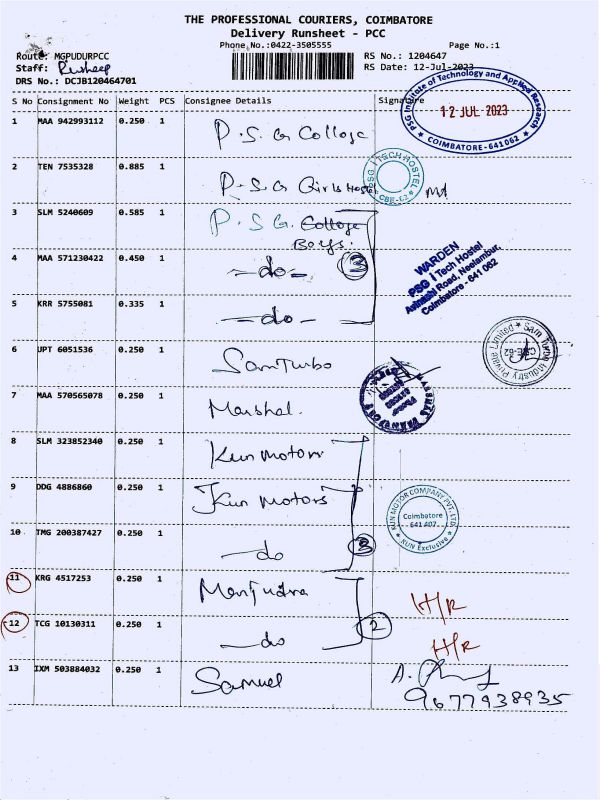 THE PROFESSIONAL COURIERS, COIMBATORE
Delivery Runsheet - PCC
Phone No.:0422-3505555 Page No.:1
Route: MGPUDURPCC RS No.: 1204647
Staff: RS Date: 12-Jul-2023
DRS No.: DCJB120464701
S No Consignment No Weight PCS Consignee Details Signature
PSG Institute of Technology and Applied Research
12 JUL 2023
COIMBATORE-641062
1 MAA 942993112 0.250 1 P.S.G College
2 TEN 7535328 0.885 1 P.S.G Girls Hostel
PSG I TECH HOSTEL
CBE-62
3 SLM 5240609 0.585 1 P.S.G. College
Boys.
4 MAA 571230422 0.450 1 -do- 3
WARDEN
PSG I Tech Hostel
Avinashi Road, Neelambur,
Coimbatore - 641 062
5 KRR 5755081 0.335 1 -do-
6 UPT 6051536 0.250 1 Sam Turbo
Sam Turbo Industry Private Limited
CBE-62
7 MAA 570565078 0.250 1 Marshal.
8 SLM 323852340 0.250 1 Kun Motors
9 DDG 4886860 0.250 1 Kun Motors
KUN MOTOR COMPANY PVT. LTD.
Coimbatore
641 407
KUN Exclusive
10 TMG 200387427 0.250 1 -do 3
11 KRG 4517253 0.250 1 H/R
12 TCG 10130311 0.250 1 -do 2 H/R
13 IXM 503884032 0.250 1 Samuel
9677938935